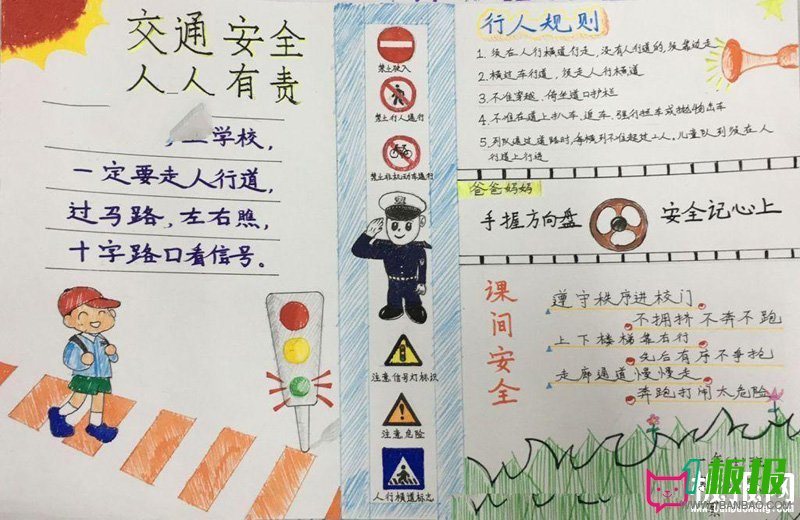 交通安全
人人有责
学校,
一定要走人行道,
过马路,左右瞧,
十字路口看信号。
禁止驶入
禁止行人通行
禁止非机动车通行
注意信号灯标识
注意危险
人行横道标志
行人规则
1. 须在人行横道行走,没有人行道的,须靠边走
2. 横过车行道,须走人行横道
3. 不准穿越、倚坐道口护栏
4. 不准在道上扒车、追车、强行拦车或抛物击车
5. 列队通过道路时,每横列不准超过二人。儿童队列须在人
行道上行进
爸爸妈妈
手握方向盘 安全记心上
课间安全
遵守秩序进校门
不拥挤不奔不跑
上下楼梯靠右行
先后有序不争抢
走廊通道慢慢走
奔跑打闹太危险
板报